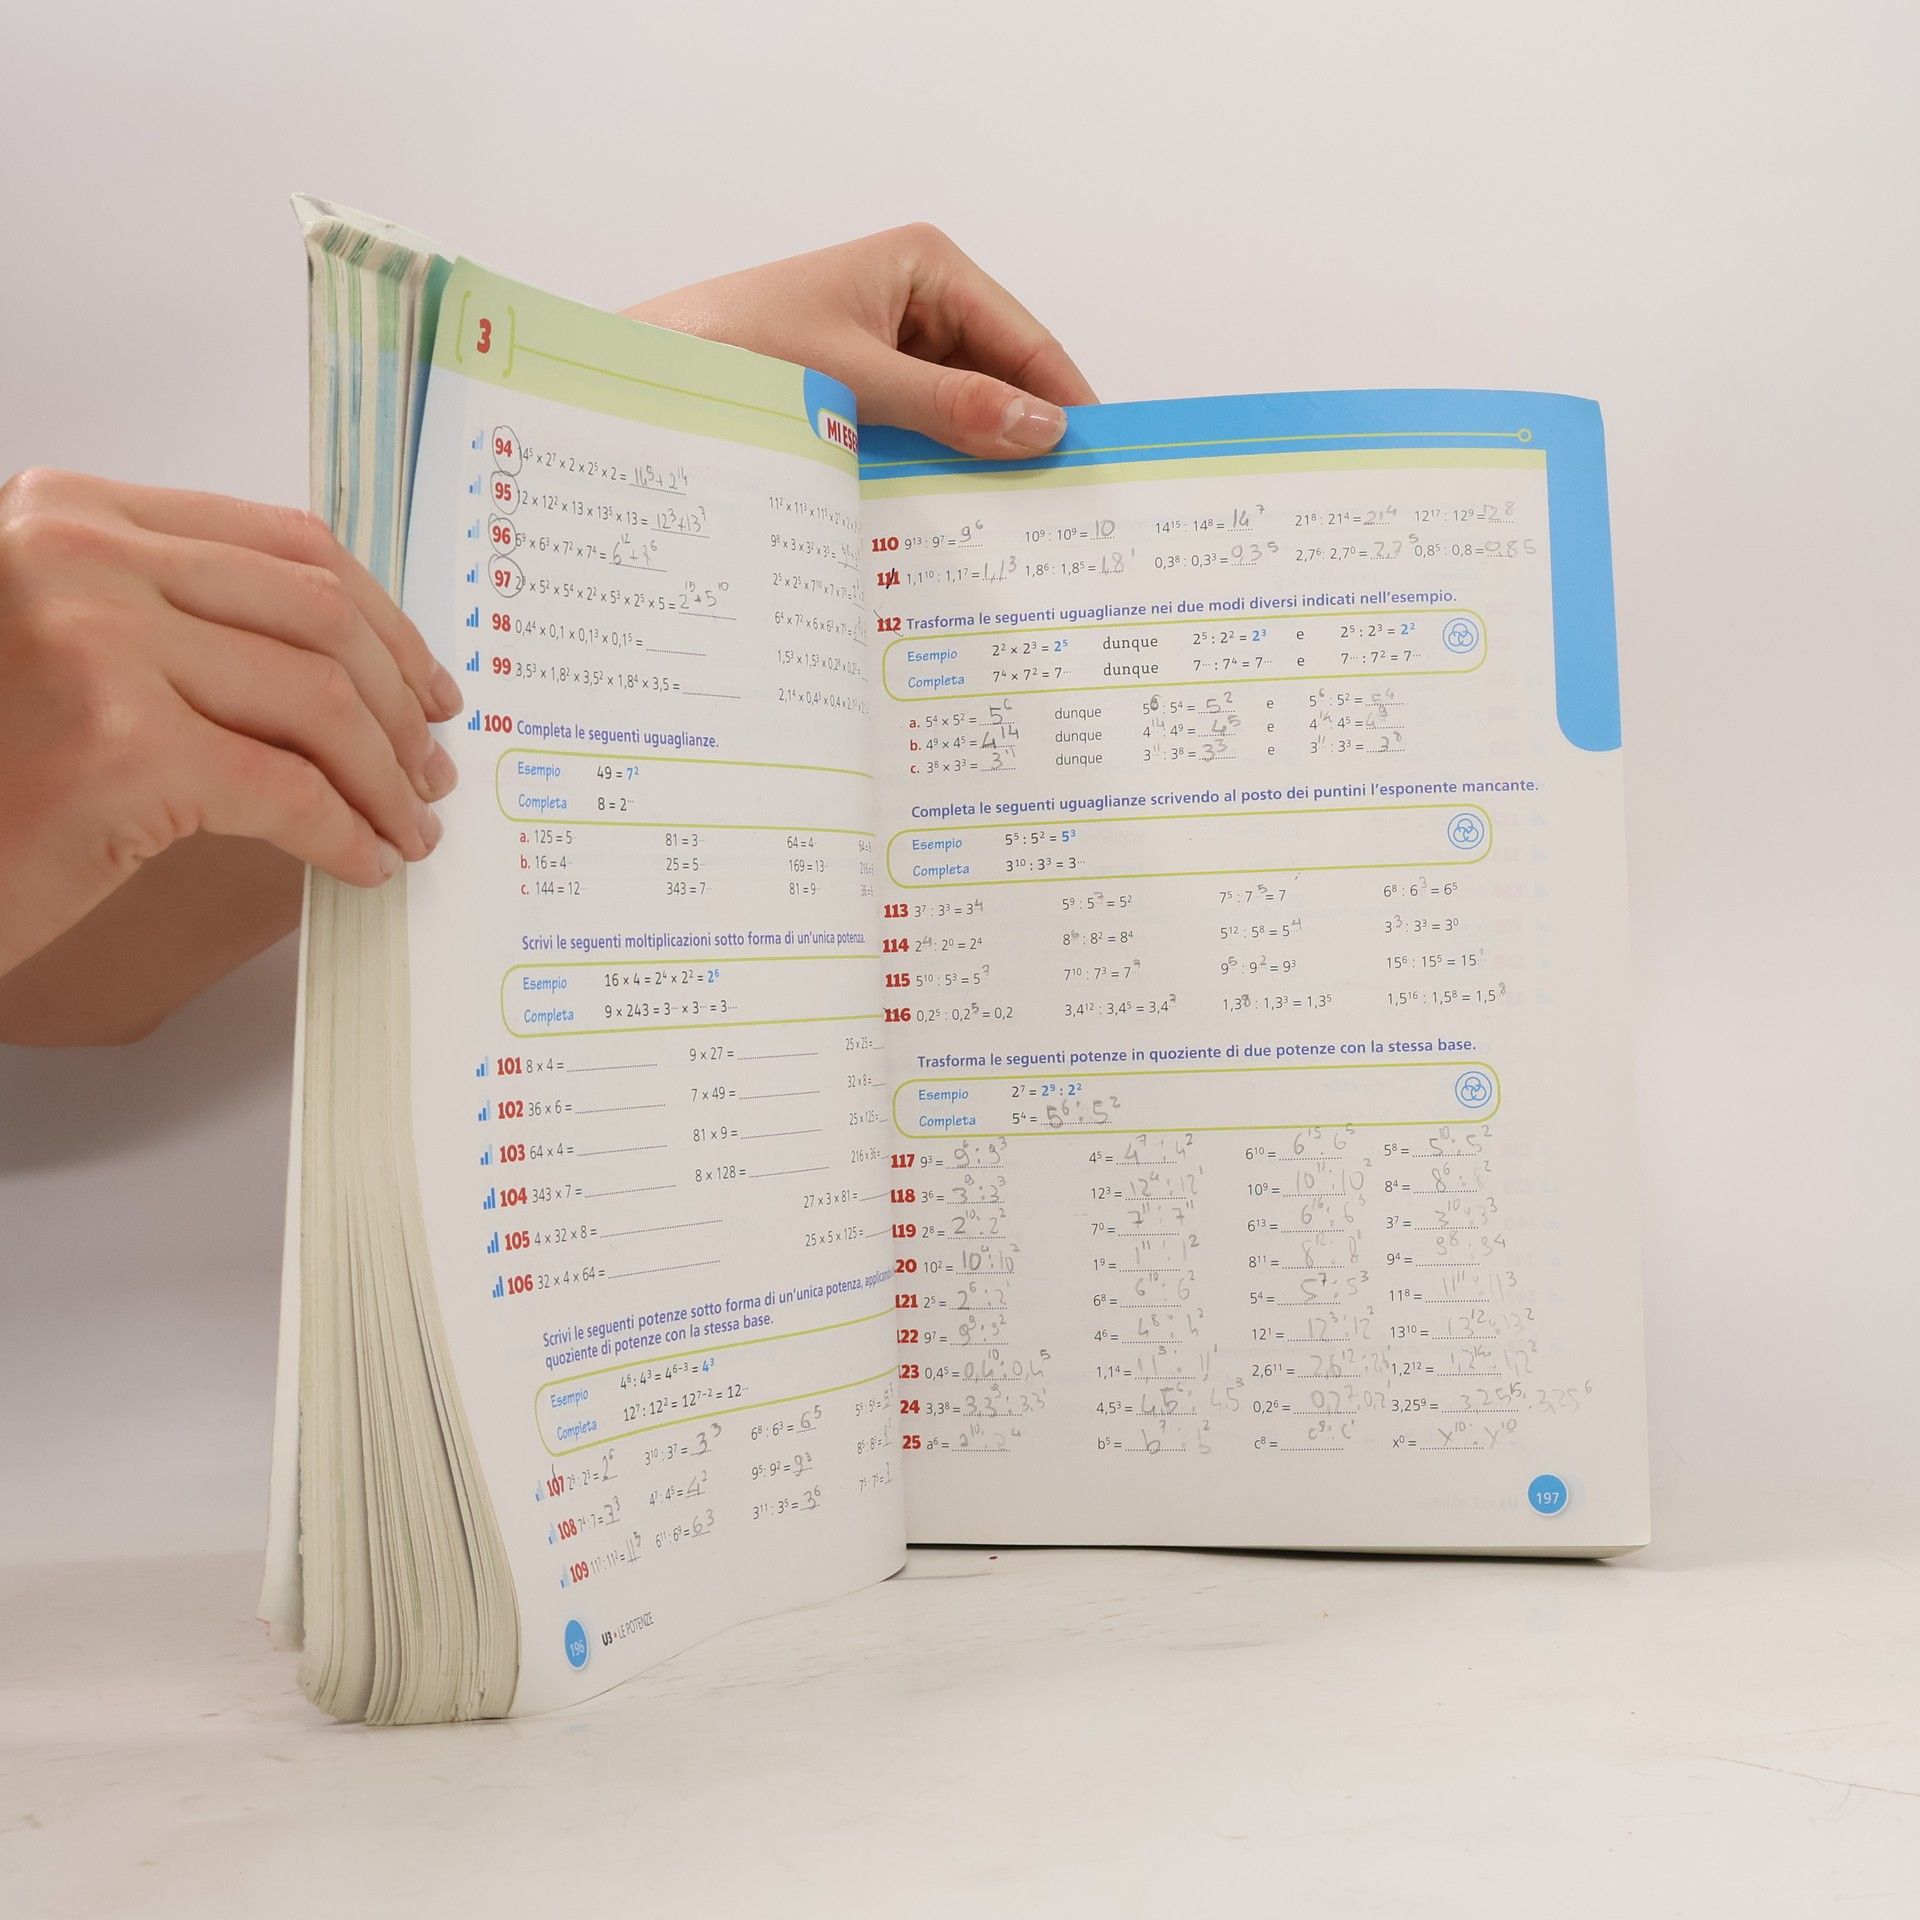 3
MI ESE
94 14⁵ × 2⁷ × 2 × 2⁵ × 2 = 14⁵ + 2¹⁴
95 12 × 12² × 13 × 13⁵ × 13 = 12³ + 13⁷
96 6⁹ × 6³ × 7² × 7⁴ = 6¹² + 7⁶
97 × 5² × 5⁴ × 2² × 5³ × 2⁵ × 5 = 2¹⁵ + 5¹⁰
98 0,4⁴ × 0,1 × 0,1³ × 0,1⁵ =
99 3,5³ × 1,8² × 3,5² × 1,8⁴ × 3,5 =
100 Completa le seguenti uguaglianze.
Esempio 49 = 7²
Completa 8 = 2···
a. 125 = 5 81 = 3 64 = 4
b. 16 = 4 25 = 5 169 = 13
c. 144 = 12 343 = 7 81 = 9
Scrivi le seguenti moltiplicazioni sotto forma di un'unica potenza.
Esempio 16 × 4 = 2⁴ × 2² = 2⁶
Completa 9 × 243 = 3··· × 3··· = 3····
101 8 × 4 = 9 × 27 = 25 × 25 =
102 36 × 6 = 7 × 49 = 32 × 8 =
103 64 × 4 = 81 × 9 = 25 × 125 =
104 343 × 7 = 8 × 128 = 216 × 36 =
105 4 × 32 × 8 = 27 × 3 × 81 =
106 32 × 4 × 64 = 25 × 5 × 125 =
Scrivi le seguenti potenze sotto forma di un'unica potenza,
quoziente di potenze con la stessa base.
Esempio 4⁶ : 4³ = 4⁶⁻³ = 4³
Completa 12⁷ : 12² = 12⁷⁻² = 12···
107 2⁹ : 2³ = 2⁶ 3¹⁰ : 3⁷ = 3³ 6⁸ : 6³ = 6⁵
108 7⁴ : 7 = 7³ 4⁷ : 4⁵ = 4² 9⁵ : 9² = 9³
109 6¹¹ : 6⁸ = 6³ 3¹¹ : 3⁵ = 3⁶
196 U3 • LE POTENZE
110 9¹³ : 9⁷ = 9⁶ 10⁹ : 10⁹ = 10 14¹⁵ : 14⁸ = 14⁷ 21⁸ : 21⁴ = 21⁴ 12¹⁷ : 12⁹ =
111 1,1¹⁰ : 1,1⁷ = 1,1³ 1,8⁶ : 1,8⁵ = 1,8¹ 0,3⁸ : 0,3³ = 0,3⁵ 2,7⁶ : 2,7⁰ = 0,8⁵ : 0,8 =
112 Trasforma le seguenti uguaglianze nei due modi diversi indicati nell'esempio.
Esempio 2² × 2³ = 2⁵ dunque 2⁵ : 2² = 2³ e 2⁵ : 2³ = 2²
Completa 7⁴ × 7² = 7··· dunque 7··· : 7⁴ = 7··· e 7··· : 7² = 7···
a. 5⁴ × 5² = 5⁶ dunque 5⁶ : 5⁴ = 5² e 5⁶ : 5² = 5⁴
b. 4⁹ × 4⁵ = 4¹⁴ dunque 4¹⁴ : 4⁹ = 4⁵ e 4¹⁴ : 4⁵ = 4⁹
c. 3⁸ × 3³ = 3¹¹ dunque 3¹¹ : 3⁸ = 3³ e 3¹¹ : 3³ = 3⁸
Completa le seguenti uguaglianze scrivendo al posto dei puntini l'esponente mancante.
Esempio 5⁵ : 5² = 5³
Completa 3¹⁰ : 3³ = 3···
113 3⁷ : 3³ = 3⁴ 5⁹ : 5⁷ = 5² 7⁵ : 7⁵ = 7 6⁸ : 6³ = 6⁵
114 2⁴ : 2⁰ = 2⁴ 8⁶ : 8² = 8⁴ 5¹² : 5⁸ = 5⁴ 3³ : 3³ = 3⁰
115 5¹⁰ : 5³ = 5⁷ 7¹⁰ : 7³ = 7⁷ 9⁵ : 9² = 9³ 15⁶ : 15⁵ = 15¹
116 0,2⁵ : 0,2⁵ = 0,2 3,4¹² : 3,4⁵ = 3,4⁷ 1,3⁸ : 1,3³ = 1,3⁵ 1,5¹⁶ : 1,5⁸ = 1,5⁸
Trasforma le seguenti potenze in quoziente di due potenze con la stessa base.
Esempio 2⁷ = 2⁹ : 2²
Completa 5⁴ = 5⁶ : 5²
117 9³ = 9⁶ : 9³ 4⁵ = 4⁷ : 4² 6¹⁰ = 6¹⁵ : 6⁵ 5⁸ = 5¹⁰ : 5²
118 3⁶ = 3⁹ : 3³ 12³ = 12⁴ : 12¹ 10⁹ = 10¹¹ : 10² 8⁴ = 8⁶ : 8²
119 2⁸ = 2¹⁰ : 2² 7⁰ = 7¹¹ : 7¹¹ 6¹³ = 6¹⁶ : 6³ 3⁷ = 3¹⁰ : 3³
20 10² = 10⁴ : 10² 1⁹ = 1¹¹ : 1² 8¹¹ = 8¹² : 8¹ 9⁴ = 9⁸ : 9⁴
121 2⁵ = 2⁶ : 2¹ 6⁸ = 6¹⁰ : 6² 5⁴ = 5⁷ : 5³ 11⁸ = 11¹¹ : 11³
122 9⁷ = 9⁹ : 9² 4⁶ = 4⁸ : 4² 12¹ = 12³ : 12² 13¹⁰ = 13¹² : 13²
123 0,4⁵ = 0,4¹⁰ : 0,4⁵ 1,1⁴ = 2,6¹¹ = 1,2¹² = 1,2¹⁴ : 1,2²
24 3,3⁸ = 3,3⁹ : 3,3¹ 4,5³ = 4,5⁶ : 4,5³ 0,2⁶ = 0,2⁷ : 0,2¹ 3,25⁹ = 3,25¹⁵ : 3,25⁶
25 a⁶ = a¹⁰ : a⁴ b⁵ = b⁷ : b² c⁸ = c⁹ : c¹ x⁰ = x¹⁰ : x¹⁰
197